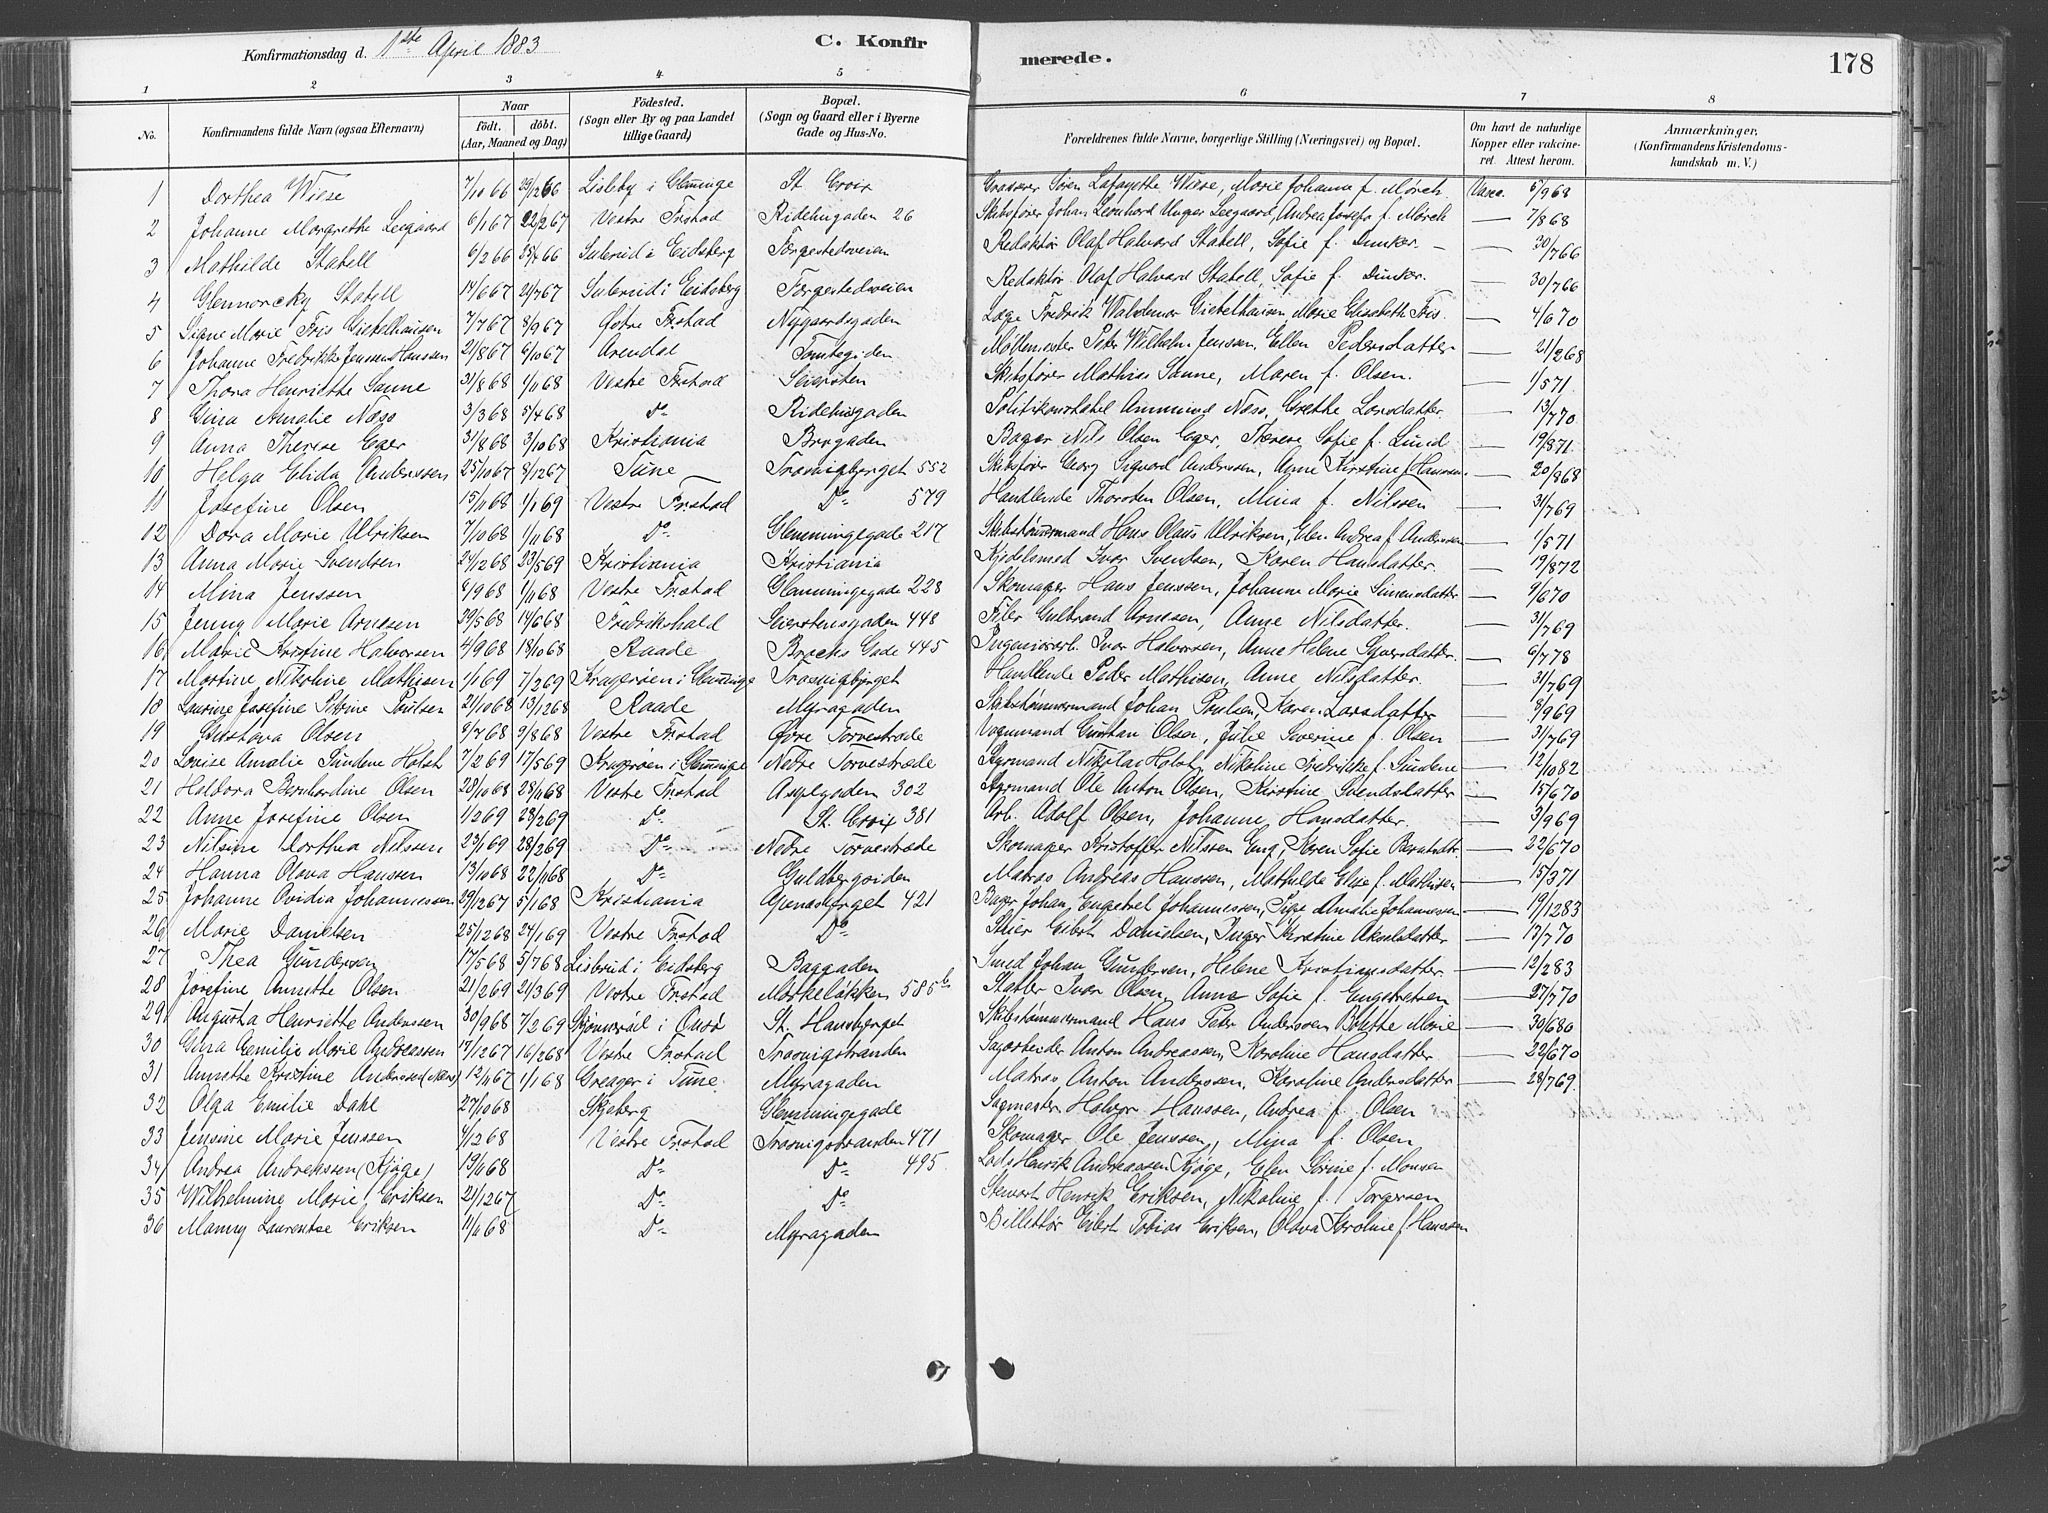 Konfirmationsdag d. 1ste April 1883 C. Konfir merede. 178
1 2 3 4 5 6 7 8
No. Konfirmandens fulde Navn (ogsaa Efternavn) Naar født. døbt. (Aar, Maaned og Dag) Födested. (Sogn eller By og paa Landet tillige Gaard.) Bopæl. (Sogn og Gaard eller i Byerne Gade og Hus-No. Forældrenes fulde Navne, borgerlige Stilling (Næringsvei) og Bopæl. Om havt de naturlige Kopper eller vakcineret. Attest herom. Anmærkninger. (Konfirmandens Kristendomskundskab m. V.)
1 Dorthea Wiese 7/10 66 29/12 66 Lisleby i Glemminge St. Croix Søren Lafayette Wiese, Marie Johanne f. Mørch Vacc. 5/9 68
2 Johanne Margrethe Leegaard 6/1 67 22/2 67 Vestre Frstad Ridehusgaden 26 Skibsfører Johan Leonhard Unger Leegaard, Andrea Josefa f. Mørch — 7/8 68
3 Mathilde Stabell 6/2 66 Eidsberg Torgestedsveien Redaktør Olaf Halvard Stabell, Sofie f. Dunker — 30/7 66
4 Stabell 14/6 67 21/7 67 Eidsberg Torgestedsveien Redaktør Olaf Halvard Stabell, Sofie f. Dunker. — 30/7 66
5 Signe Marie Friis Giebelhausen 7/7 67 8/9 67 Østre Frstad Nygaardsgaden Læge Fredrik Waldemar Giebelhausen, Marie Elisabeth Friis — 4/6 70
6 Johanne Fredrikke Jenssen Hanssen 21/8 67 6/10 67 Arendal Tomtegaden Møllemester Peter Wilhelm Jenssen, Ellen Pedersdatter — 21/2 68
7 Thora Henriette Sanne 31/8 68 1/11 68 Vestre Frstad Seiersten Skibsfører Mathias Sanne, Maren f. Olsen. — 1/5 71
8 Gina Amalie Næss 3/3 68 5/4 68 Do Ridehusgaden Politikonstabel Ammund Næss, Grethe Larsdatter — 13/7 70
9 Anna Therese Eger 31/8 68 3/10 68 Kristiania Brogaden Bager Nils Olsen Eger, Therese Sofie f. Lund — 19/8 71
10 Helga Elida Anderssen 25/10 67 8/12 67 Tune Trosvigbjerget 552 Skibsfører Georg Sigvard Anderssen, Anne Kirstine f. Hanssen — 20/8 68
11 Josefine Olsen 15/11 68 1/1 69 Vestre Frstad Do 579 Handlende Thorsten Olsen, Mina f. Nilssen — 31/7 69
12 Dora Marie Ulriksen 7/10 68 1/11 68 Do Glemmingegade 217 Skibstømmermand Hans Olaus Ulriksen, Elen Andrea f. Anderssen — 1/5 71
13 Anna Marie Svendsen 24/12 68 23/5 69 Kristiania Kristiania Kjedelsmed Ivar Svendsen, Karen Hansdatter — 19/8 72
14 Mina Jenssen 8/9 68 1/11 68 Vestre Frstad Glemmingegade 228 Skomager Hans Jenssen, Johanne Marie Simensdatter — 9/6 70
15 Jenny Marie Arnesen 29/5 68 14/6 68 Fredrikshald Seierstensgaden 448 Filer Gulbrand Arnesen, Anne Nilsdatter. — 31/7 69
16 Marie Kristine Halvorsen 4/9 68 18/10 68 Raade Brochs Gade 445 Ivar Halvorsen, Anne Helene Syversdatter — 6/7 78
17 Martine Nikoline Mathisen 1/1 69 7/2 69 Kragerøen i Glemminge Trosvigbjerget Handlende Peder Mathisen, Anne Nilsdatter. — 31/7 69
18 Laurine Josefine Petrine Poulsen 21/10 68 13/12 68 Raade Myragaden Skibstømmermand Johan Poulsen, Karen Larsdatter — 8/9 69
19 Gustava Olsen 4/7 68 9/8 68 Vestre Frstad Øvre Torvestræde Vognmand Gustav Olsen, Julie Severine f. Olsen — 31/7 69
20 Lovise Amalie Sundene Holst 7/2 69 17/5 69 Kragerøen i Glemminge Nedre Torvestræde Styrmand Nikolai Holst, Nikoline Fredrikke f. Sundene — 12/10 82
21 Haldora Bernhardine Olsen 28/10 68 28/11 68 Vestre Frstad Aspegaden 302 Styrmand Ole Anton Olsen, Kirstine Svendsdatter — 15/6 70
22 Anne Josefine Olsen 1/2 69 28/2 69 Do St. Croix 381 Arb. Adolf Olsen, Johanne Hansdatter. — 3/9 69
23 Nilsine Dorthea Nilssen 23/1 69 28/2 69 Do Nedre Torvestræde Skomager Kristoffer Nilssen Eng, Karen Sofie Berntsdtr. — 22/6 70
24 Hanna Olava Hanssen 13/10 68 22/11 68 Do Guldbergsiden Matros Andreas Hanssen, Mathilde Elise f. Mathisen — 15/3 71
25 Johanne Ovidia Johannessen 29/12 67 5/1 68 Kristiania Apenæsberget 421 Bager Johan Engebret Johannessen, Amalie Johannessen — 19/12 83
26 Marie Danielsen 25/12 68 24/1 69 Vestre Frstad Do Eibert Danielsen, Inger Kirstine Akselsdatter — 13/7 70
27 Thea Gundersen 17/5 68 5/7 68 Lisbrud i Eidsberg Baggaden Smed Johan Gundersen, Helene Kristiansdatter — 12/2 83
28 Josefine Annette Olsen 21/2 69 21/3 69 Vestre Frstad Mørkeløkken 585 b Stabler Ivar Olsen, Anne Sofie f. Engebretsen — 27/7 70
29 Augusta Henriette Anderssen 30/9 68 7/2 69 i Onsø St. Hansberget Skibstømmermand Hans Peter Anderssen Bolette Marie — 30/6 80
30 Gina Aemilie Marie Andreassen 17/12 67 16/2 68 Vestre Frstad Trosvigstranden Sagarbeider Anton Andreassen, Karoline Hansdatter — 22/6 70
31 Annette Kristine Anderssen 12/11 67 1/1 68 Greager i Tune Myragaden Matros Anton Anderssen, Karoline Andersdatter — 28/7 69.
32 Olga Emilie Dahl 27/10 68 Skjeberg Glemmingegade Sagmester Halvor Hanssen, Andrea f. Olsen
33 Jensine Marie Jenssen 4/12 68 Vestre Frstad Trosvigstranden 471 Skomager Ole Jenssen, Mina f. Olsen
34 Andrea Andreassen (Kjøge) 19/11 68 Do Do 495. Lods Henrik Andreassen Kjøge, Elen Sørine f. Monsen
35 Wilhelmine Marie Eriksen 21/12 67 Do Do Stewart Henrik Eriksen, Nikoline f. Torgersen
36 Manny Laurentse Eriksen 11/11 68 Do Myragaden Billettør Eilert Tobias Eriksen, Olava Karoline f. Hanssen